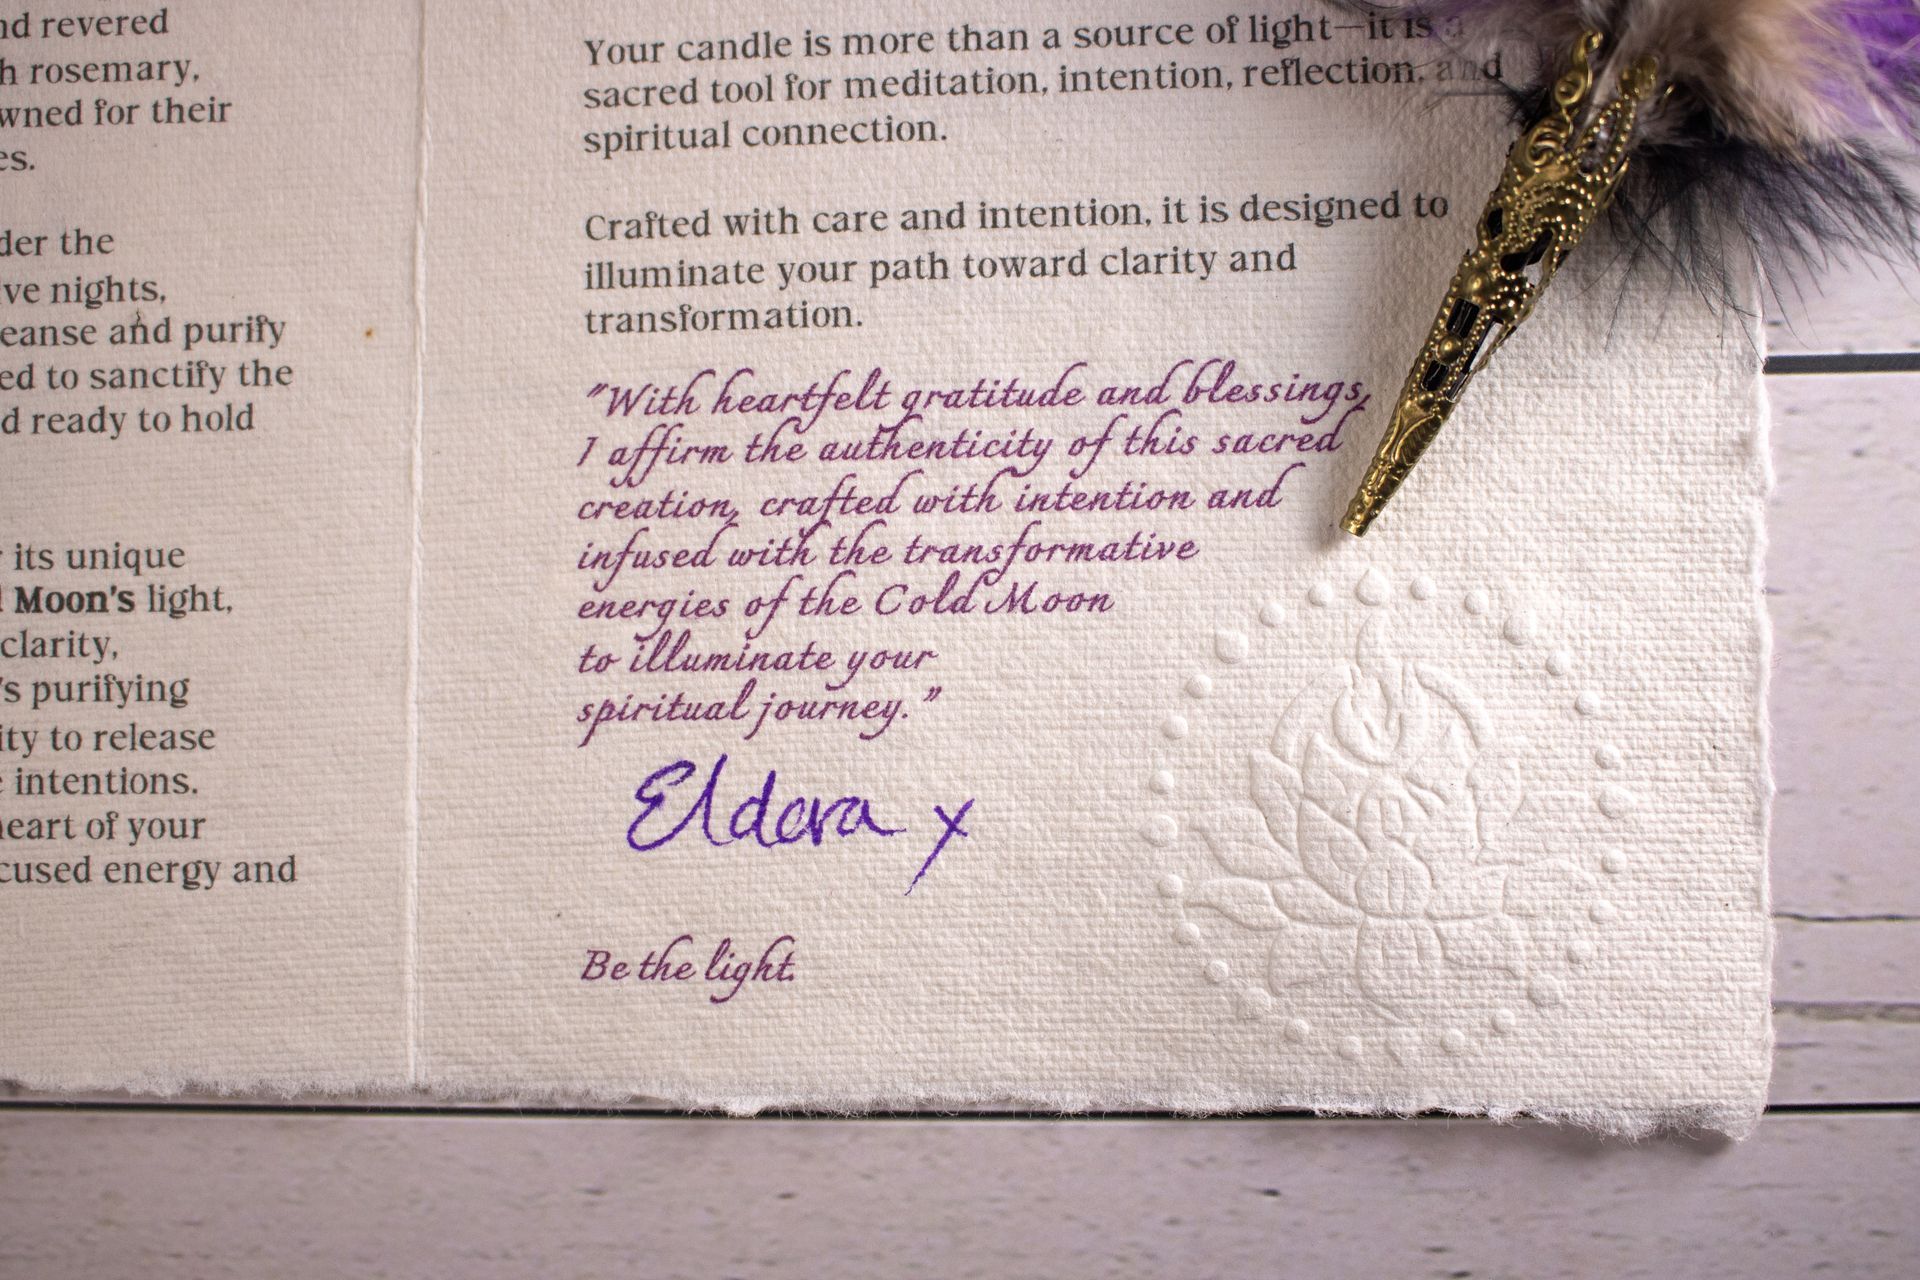 nd revered
h rosemary,
wned for their
es.
der the
ve nights,
eanse and purify
ed to sanctify the
d ready to hold
its unique
Moon's light,
clarity,
's purifying
ity to release
intentions.
heart of your
cused energy and
Your candle is more than a source of light—it is a
sacred tool for meditation, intention, reflection, and
spiritual connection.
Crafted with care and intention, it is designed to
illuminate your path toward clarity and
transformation.
"With heartfelt gratitude and blessings,
I affirm the authenticity of this sacred
creation, crafted with intention and
infused with the transformative
energies of the Cold Moon
to illuminate your
spiritual journey."
Eldera x
Be the light.